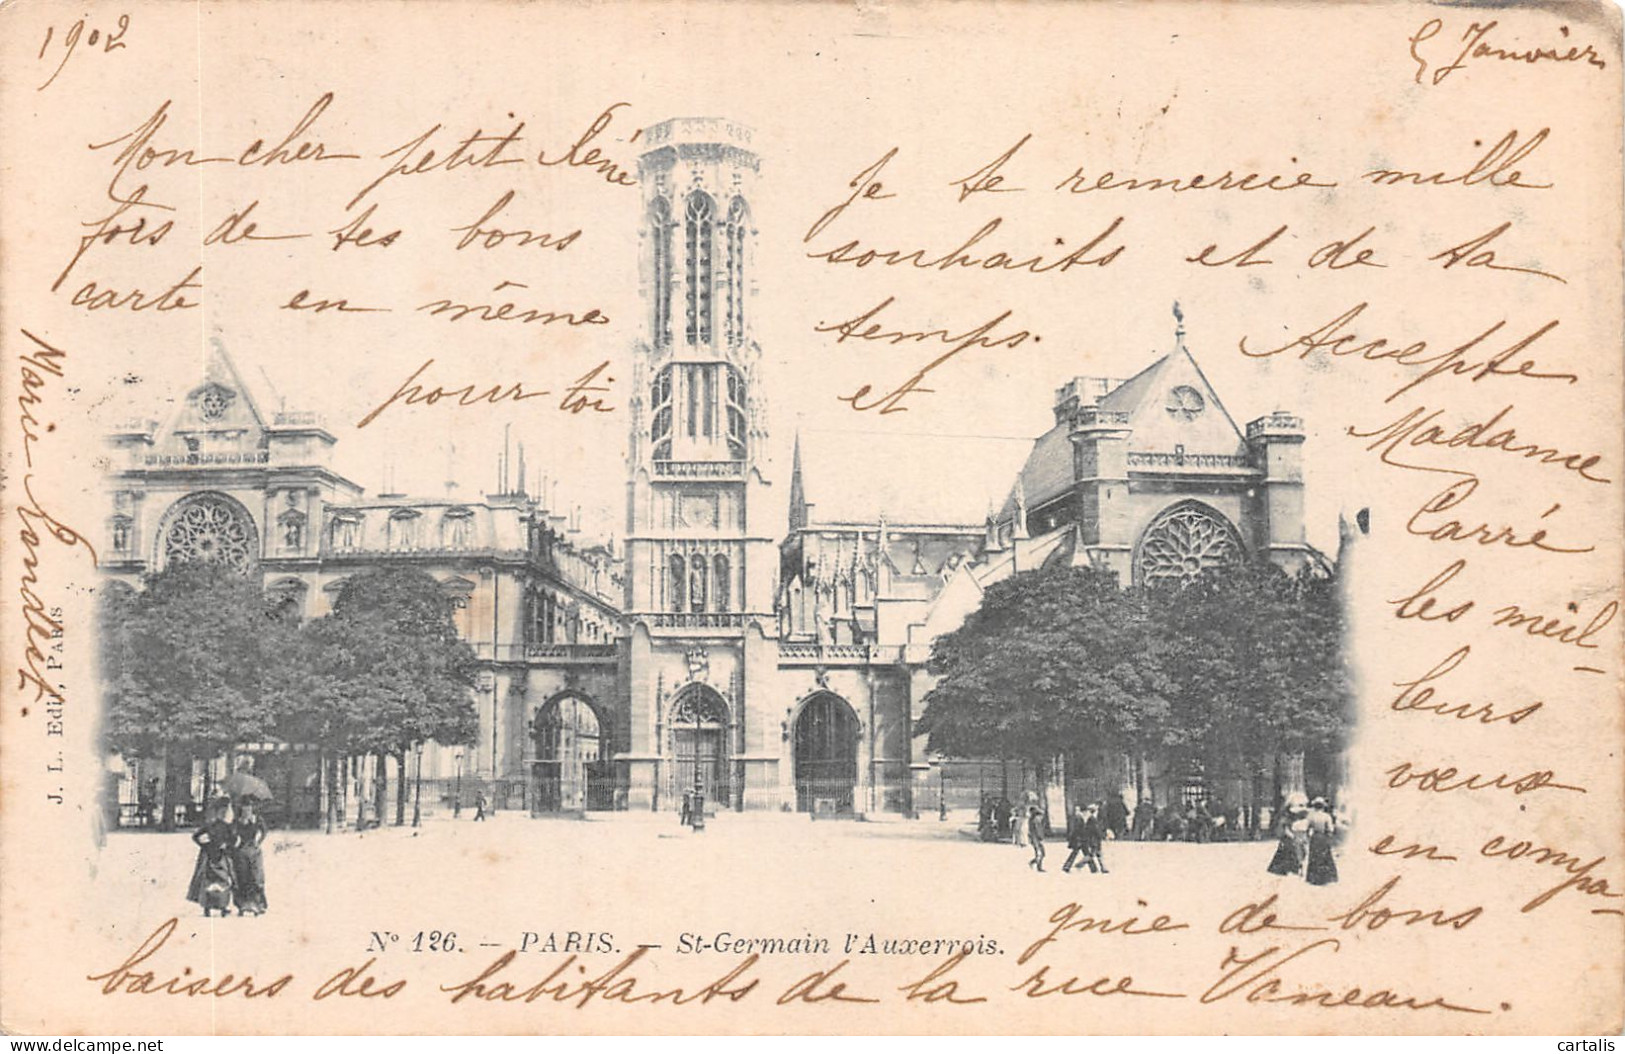 1902
5 Janvier
Mon cher petit René Je te remercie mille
fois de tes bons souhaits et de ta
carte en même temps. Accepte
pour toi et Madame
Carré
les meil-
leurs
vœux
en compa-
gnie de bons
baisers des habitants de la rue Vaneau.
Marie
J. L. Edit, PARIS
N° 126. — PARIS. — St-Germain l'Auxerrois.
cartalis